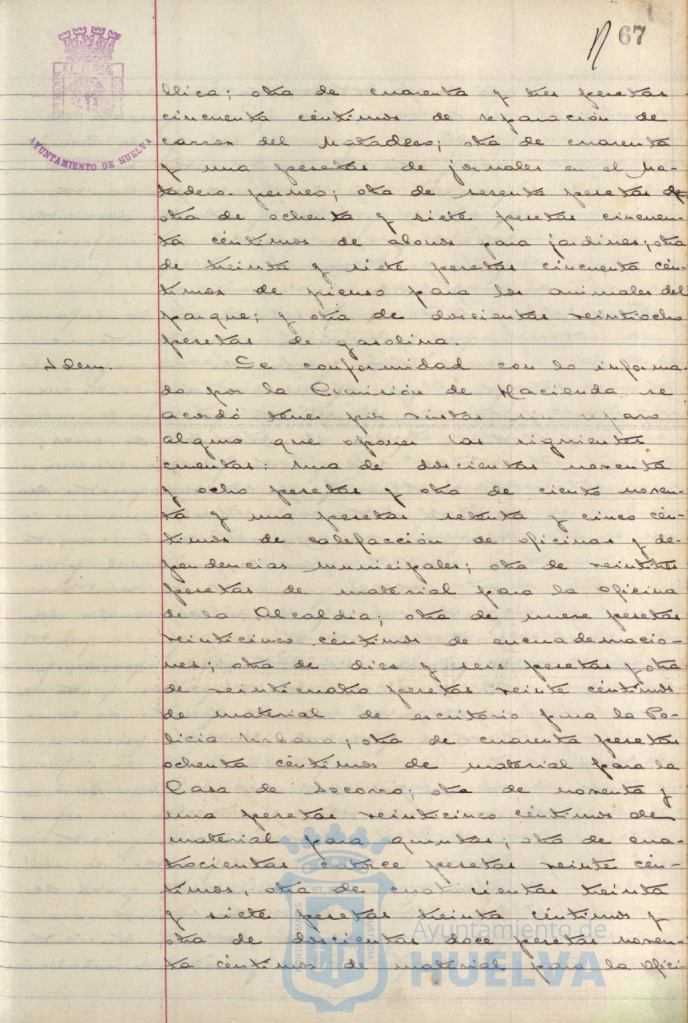 67
AYUNTAMIENTO DE HUELVA
blica; otra de cuarenta y tres pesetas
cincuenta céntimos de reparación de
carros del Matadero; otra de cuarenta
y una pesetas de jornales en el Ma-
tadero; otra de sesenta pesetas
otra de ochenta y siete pesetas cincuen-
ta céntimos de abonos para jardines; otra
de treinta y siete pesetas cincuenta cén-
timos de pienso para los animales del
parque; y otra de doscientas veintiocho
pesetas de gasolina.
Idem.
De conformidad con lo informa-
do por la Comisión de Hacienda se
acordó tener por vistas sin reparo
alguno que oponer las siguientes
cuentas: una de doscientas noventa
y ocho pesetas y otra de ciento noven-
ta y una pesetas setenta y cinco cén-
timos de calefacción de oficinas y de-
pendencias municipales; otra de veintitres
pesetas de material para la oficina
de la Alcaldia; otra de nueve pesetas
veinticinco céntimos de encuadernacio-
nes; otra de diez y seis pesetas y otra
de veinticuatro pesetas veinte céntimos
de material de escritorio para la Po-
licia Urbana; otra de cuarenta pesetas
ochenta céntimos de material para la
Casa de Socorro; otra de noventa y
una pesetas veinticinco céntimos de
material para quintas; otra de cua-
trocientas catorce pesetas veinte cén-
timos, otra de cuatrocientas treinta
y siete pesetas treinta céntimos y
otra de doscientas doce pesetas noven-
ta céntimos de material para la ofici-
Ayuntamiento de
HUELVA